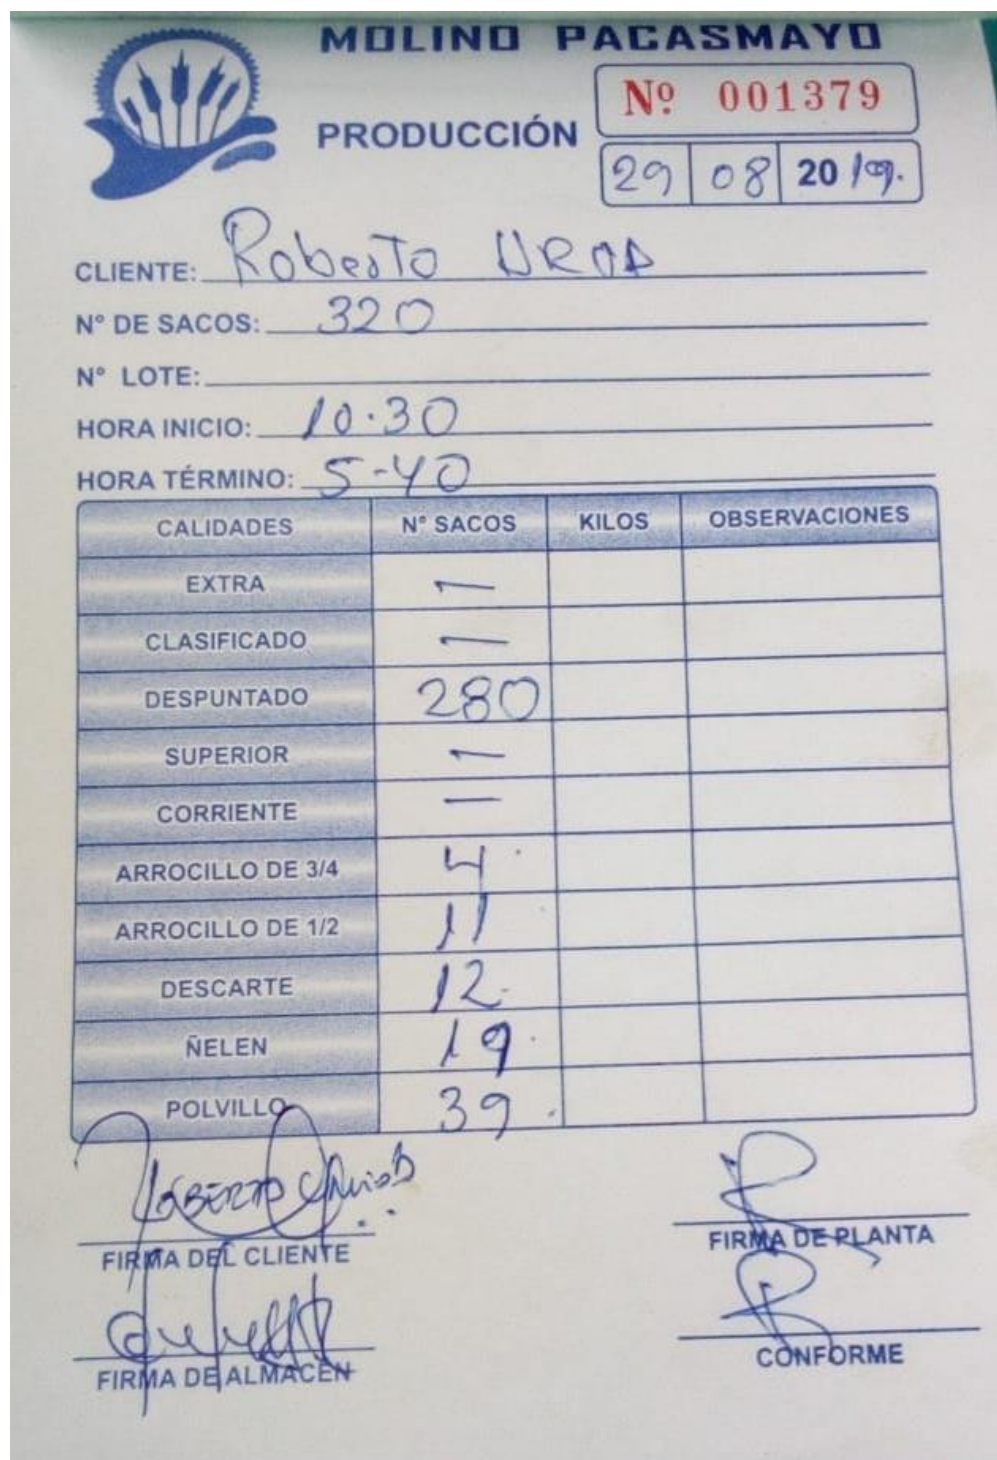 MOLINO PACASMAYO
Nº 001379
PRODUCCIÓN
29 08 2019.
CLIENTE: Roberto
N° DE SACOS: 320
N° LOTE:
HORA INICIO: 10.30
HORA TÉRMINO: 5-40
CALIDADES N° SACOS KILOS OBSERVACIONES
EXTRA —
CLASIFICADO —
DESPUNTADO 280
SUPERIOR —
CORRIENTE —
ARROCILLO DE 3/4 4
ARROCILLO DE 1/2 11
DESCARTE 12
ÑELEN 19
POLVILLO 39
FIRMA DEL CLIENTE
FIRMA DE PLANTA
FIRMA DE ALMACÉN
CONFORME